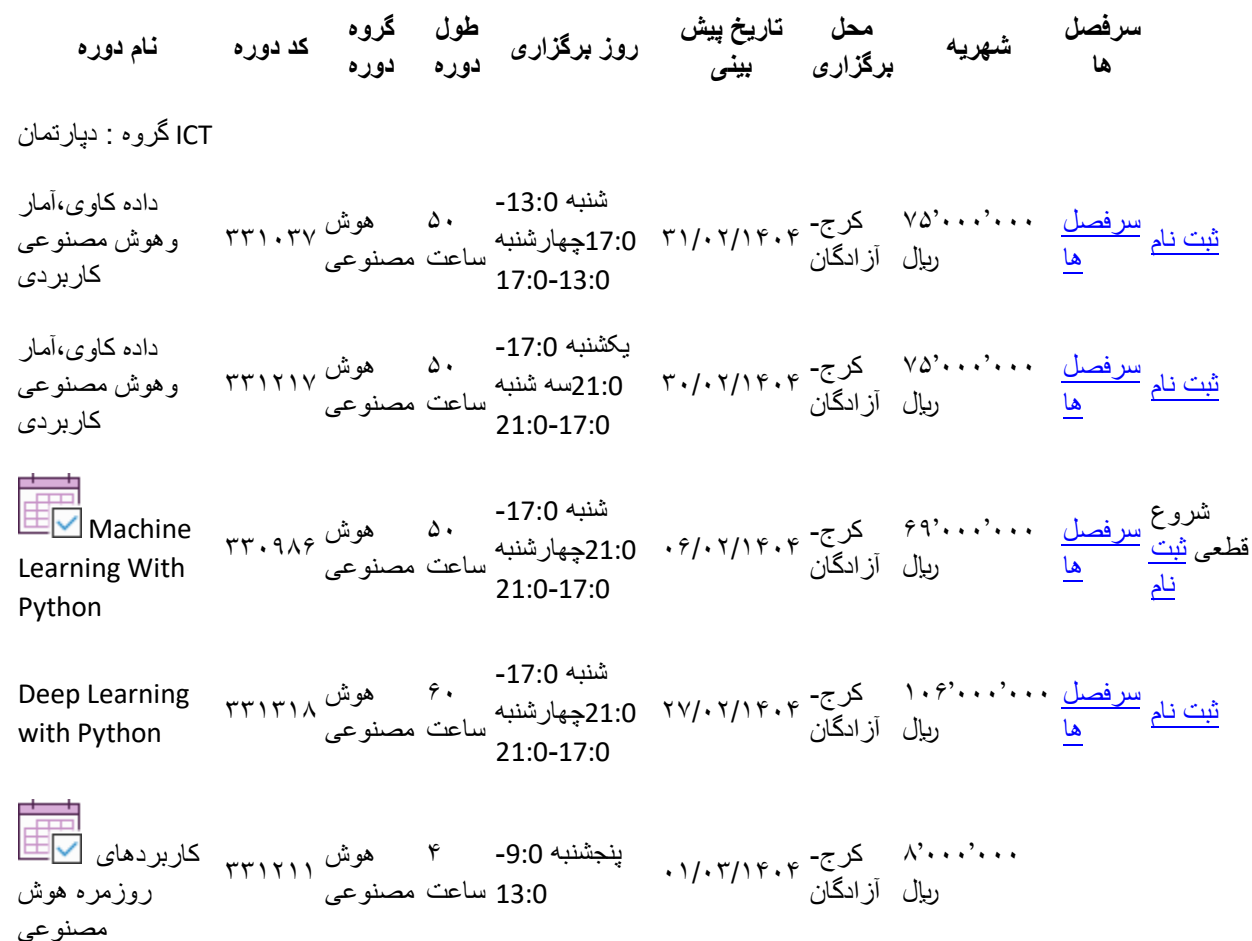 نام دوره	کد دوره	گروه دوره	طول دوره	روز برگزاری	تاریخ پیش بینی	محل برگزاری	شهریه	سرفصل ها
گروه : دپارتمان ICT
داده کاوی،آمار وهوش مصنوعی کاربردی	۳۳۱۰۳۷	هوش مصنوعی	۵۰ ساعت	شنبه 13:0-17:0چهارشنبه 13:0-17:0	۳۱/۰۲/۱۴۰۴	کرج-آزادگان	۷۵٬۰۰۰٬۰۰۰ ریال	سرفصل ها	ثبت نام
داده کاوی،آمار وهوش مصنوعی کاربردی	۳۳۱۲۱۷	هوش مصنوعی	۵۰ ساعت	یکشنبه 17:0-21:0سه شنبه 17:0-21:0	۳۰/۰۲/۱۴۰۴	کرج-آزادگان	۷۵٬۰۰۰٬۰۰۰ ریال	سرفصل ها	ثبت نام
Machine Learning With Python	۳۳۰۹۸۶	هوش مصنوعی	۵۰ ساعت	شنبه 17:0-21:0چهارشنبه 17:0-21:0	۰۶/۰۲/۱۴۰۴	کرج-آزادگان	۶۹٬۰۰۰٬۰۰۰ ریال	سرفصل ها	شروع قطعی ثبت نام
Deep Learning with Python	۳۳۱۳۱۸	هوش مصنوعی	۶۰ ساعت	شنبه 17:0-21:0چهارشنبه 17:0-21:0	۲۷/۰۲/۱۴۰۴	کرج-آزادگان	۱۰۶٬۰۰۰٬۰۰۰ ریال	سرفصل ها	ثبت نام
کاربردهای روزمره هوش مصنوعی	۳۳۱۲۱۱	هوش مصنوعی	۴ ساعت	پنجشنبه 9:0-13:0	۰۱/۰۳/۱۴۰۴	کرج-آزادگان	۸٬۰۰۰٬۰۰۰ ریال